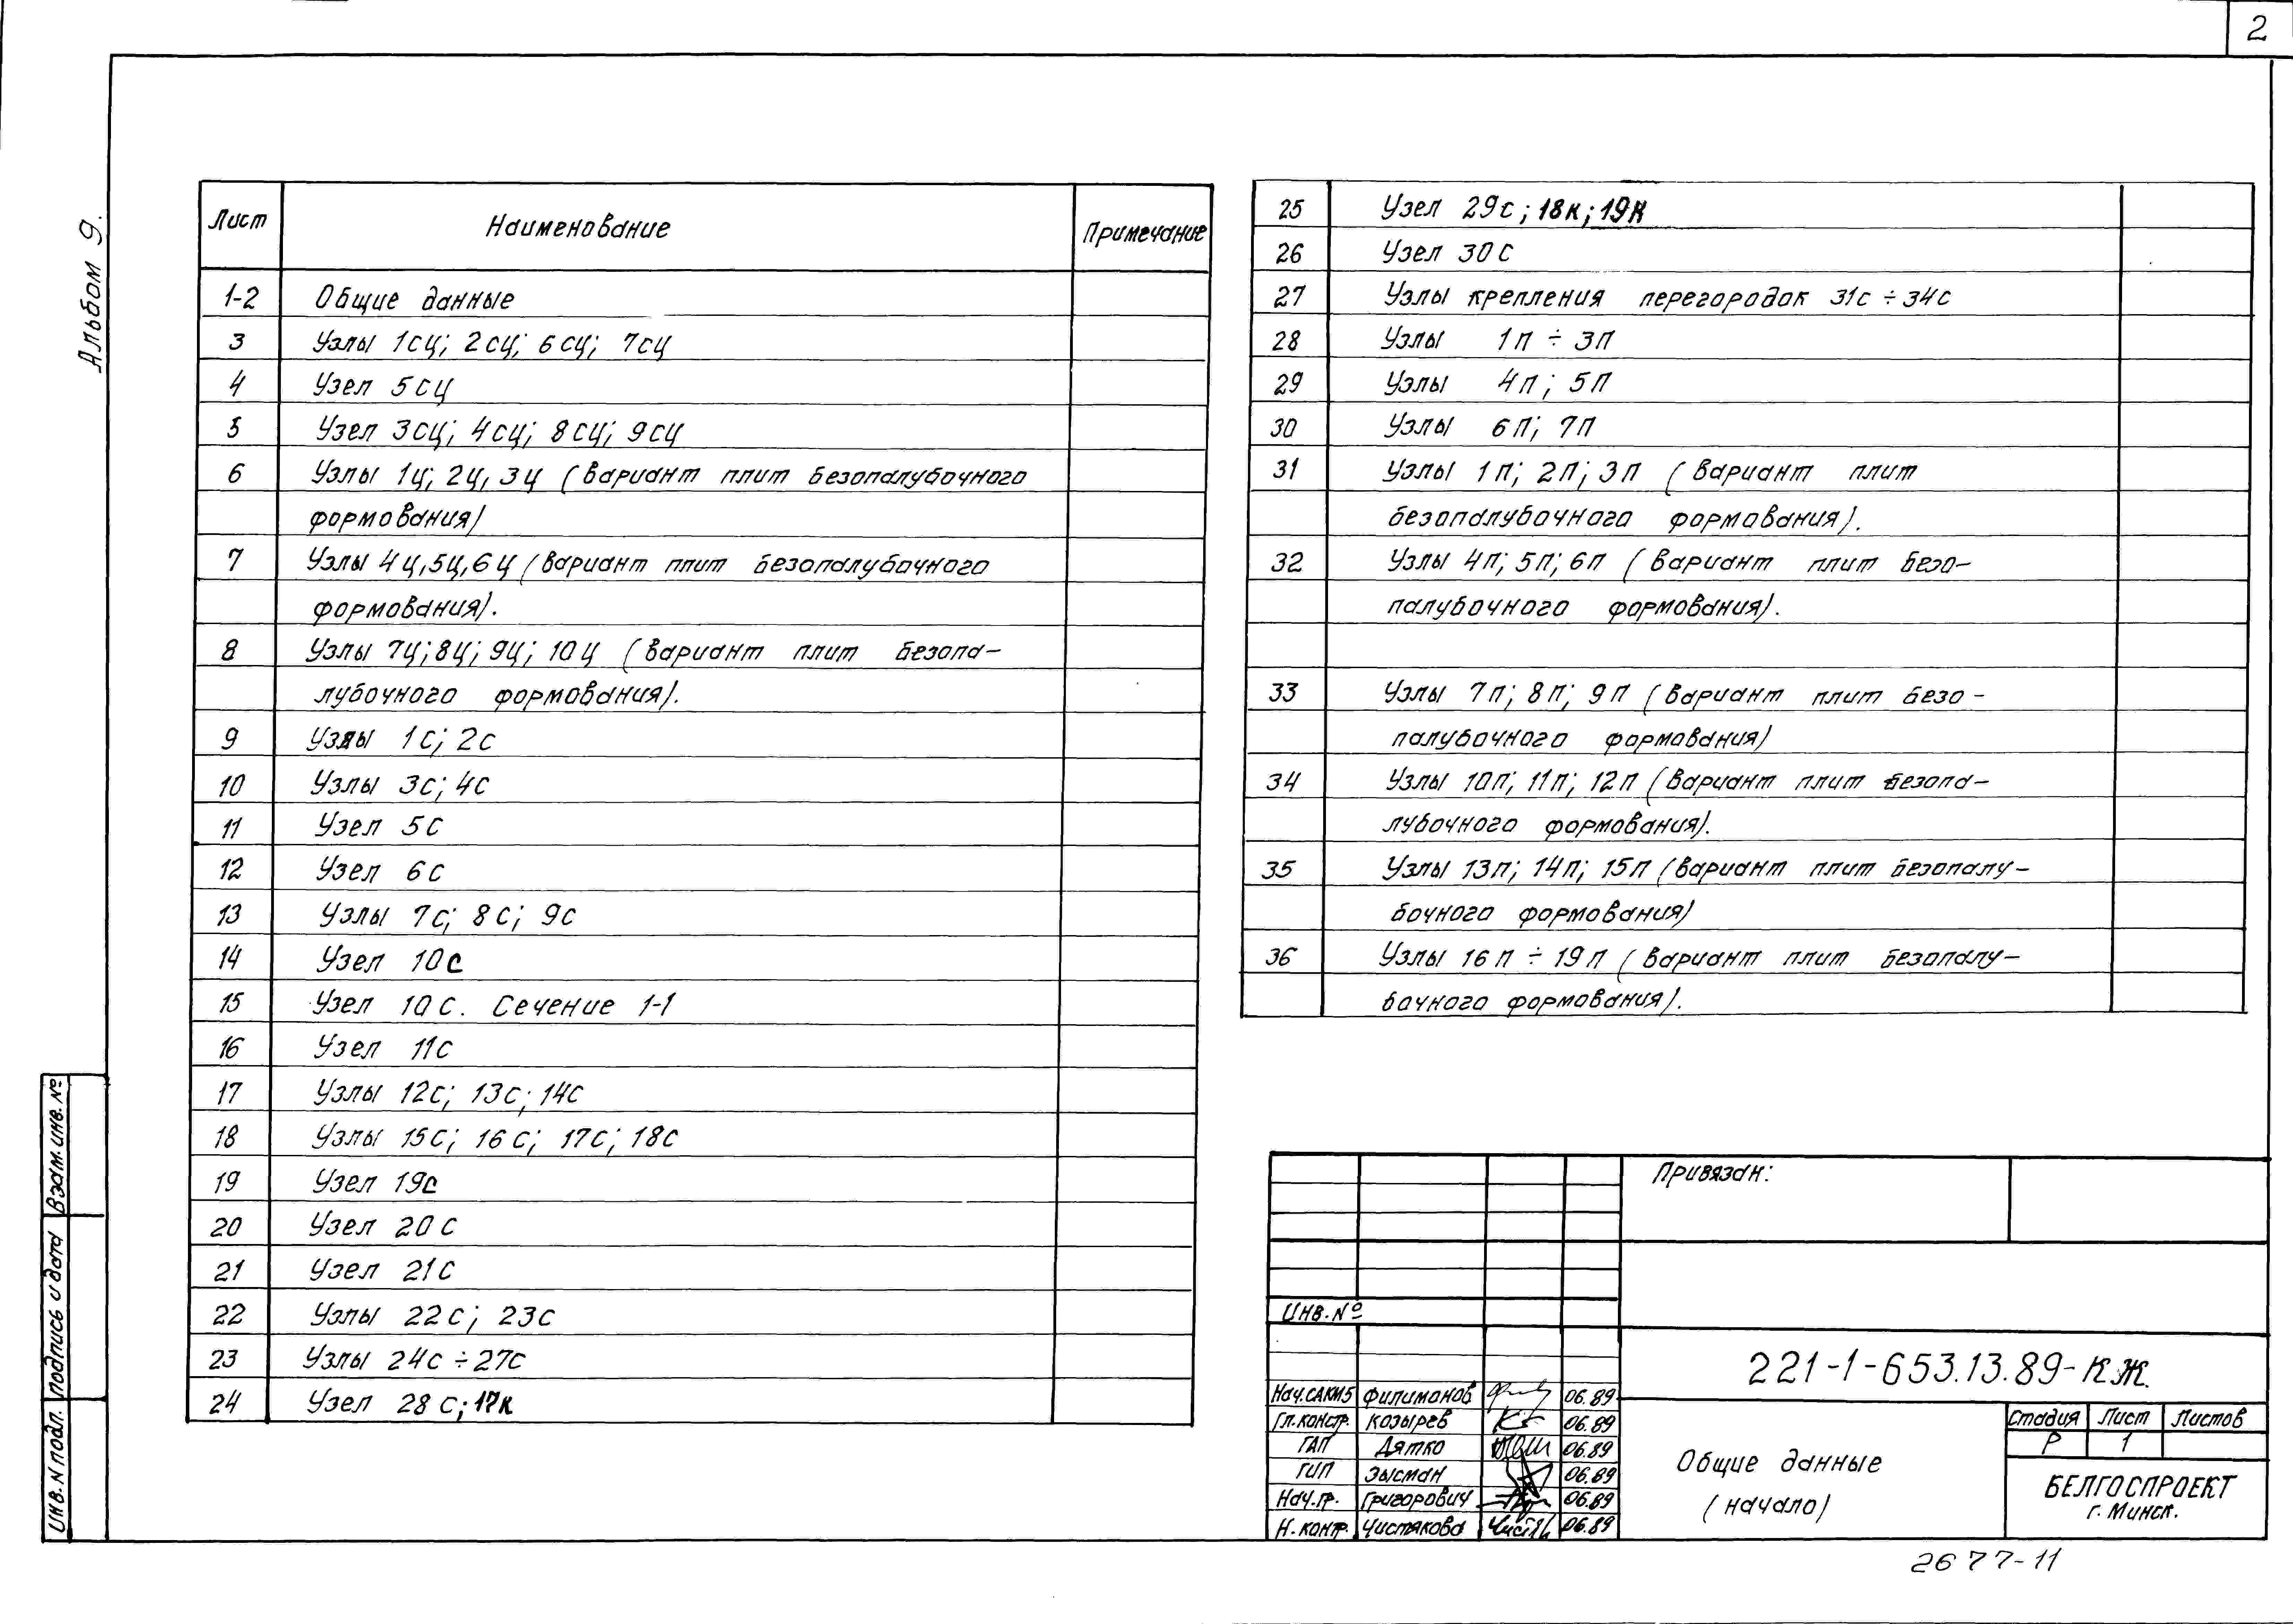 2
Альбом 9.
Лист Наименование Примечание
1-2 Общие данные
3 Узлы 1сц; 2сц; 6сц; 7сц
4 Узел 5сц
5 Узел 3сц; 4сц; 8сц; 9сц
6 Узлы 1ц; 2ц, 3ц (вариант плит безопалубочного
формования)
7 Узлы 4ц, 5ц, 6ц (вариант плит безопалубочного
формования).
8 Узлы 7ц; 8ц; 9ц; 10ц (вариант плит безопа-
лубочного формования).
9 Узлы 1с; 2с
10 Узлы 3с; 4с
11 Узел 5с
12 Узел 6с
13 Узлы 7с; 8с; 9с
14 Узел 10с
15 Узел 10с. Сечение 1-1
16 Узел 11с
17 Узлы 12с; 13с; 14с
18 Узлы 15с; 16с; 17с; 18с
19 Узел 19с
20 Узел 20с
21 Узел 21с
22 Узлы 22с; 23с
23 Узлы 24с ÷ 27с
24 Узел 28с; 17к
25 Узел 29с; 18к; 19к
26 Узел 30с
27 Узлы крепления перегородок 31с ÷ 34с
28 Узлы 1п ÷ 3п
29 Узлы 4п; 5п
30 Узлы 6п; 7п
31 Узлы 1п; 2п; 3п (вариант плит
безопалубочного формования).
32 Узлы 4п; 5п; 6п (вариант плит безо-
палубочного формования).
33 Узлы 7п; 8п; 9п (вариант плит безо-
палубочного формования)
34 Узлы 10п; 11п; 12п (вариант плит безопа-
лубочного формования).
35 Узлы 13п; 14п; 15п (вариант плит безопалу-
бочного формования)
36 Узлы 16п ÷ 19п (вариант плит безопалу-
бочного формования).
Привязан:
Инв. №
221-1-653.13.89-КЖ.
Нач.САКМ5 Филиманов 06.89
Гл.констр. Козырев 06.89
ГАП Дятко 06.89
ГИП Зысман 06.89
Нач.гр. Григорович 06.89
Н. контр. Чистякова 06.89
Общие данные
(начало)
Стадия Лист Листов
Р 1
БЕЛГОСПРОЕКТ
г. Минск.
2677-11
Взам. инв. №
Подпись и дата
Инв. N подл.